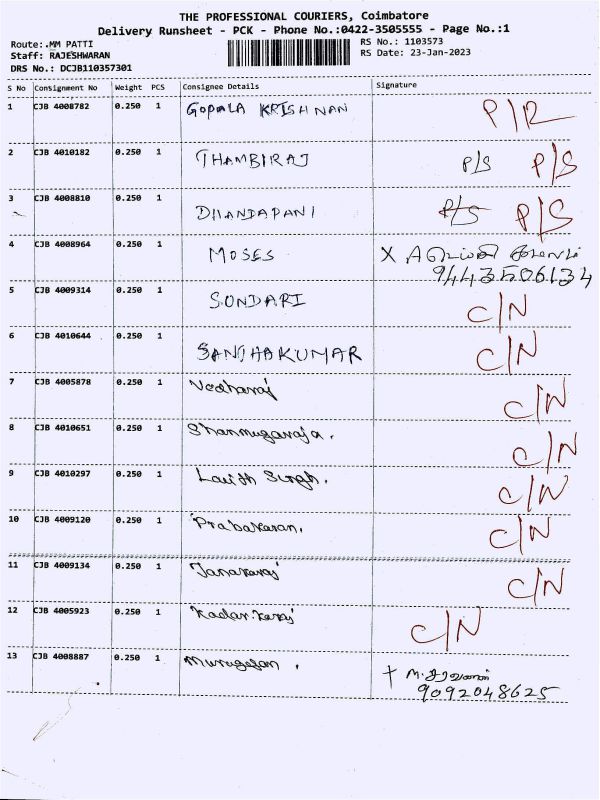 THE PROFESSIONAL COURIERS, Coimbatore
Delivery Runsheet - PCK - Phone No.:0422-3505555 - Page No.:1
Route:.MM PATTI
RS No.: 1103573
Staff: RAJESHWARAN
RS Date: 23-Jan-2023
DRS No.: DCJB110357301
S No Consignment No Weight PCS Consignee Details Signature
1 CJB 4008782 0.250 1 GOPALA KRISHNAN P/R
2 CJB 4010182 0.250 1 THAMBIRAJ P/S P/S
3 CJB 4008810 0.250 1 DHANDAPANI P/S P/S
4 CJB 4008964 0.250 1 MOSES X
9443506134
5 CJB 4009314 0.250 1 SUNDARI C/N
6 CJB 4010644 0.250 1 SANTHAKUMAR C/N
7 CJB 4005878 0.250 1 C/N
8 CJB 4010651 0.250 1 Shanmugaraja. C/N
9 CJB 4010297 0.250 1 Lalith Singh. C/N
10 CJB 4009120 0.250 1 Prabakaran. C/N
11 CJB 4009134 0.250 1 Janakaraj C/N
12 CJB 4005923 0.250 1 C/N
13 CJB 4008887 0.250 1 Murugesan. M. சரவணன்
9092048625